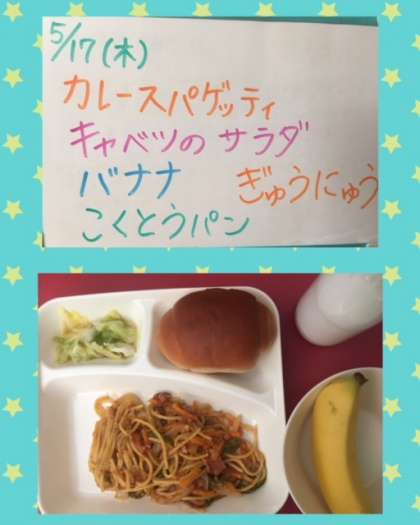 5/17(木)
カレースパゲッティ
キャベツのサラダ
バナナ ぎゅうにゅう
こくとうパン